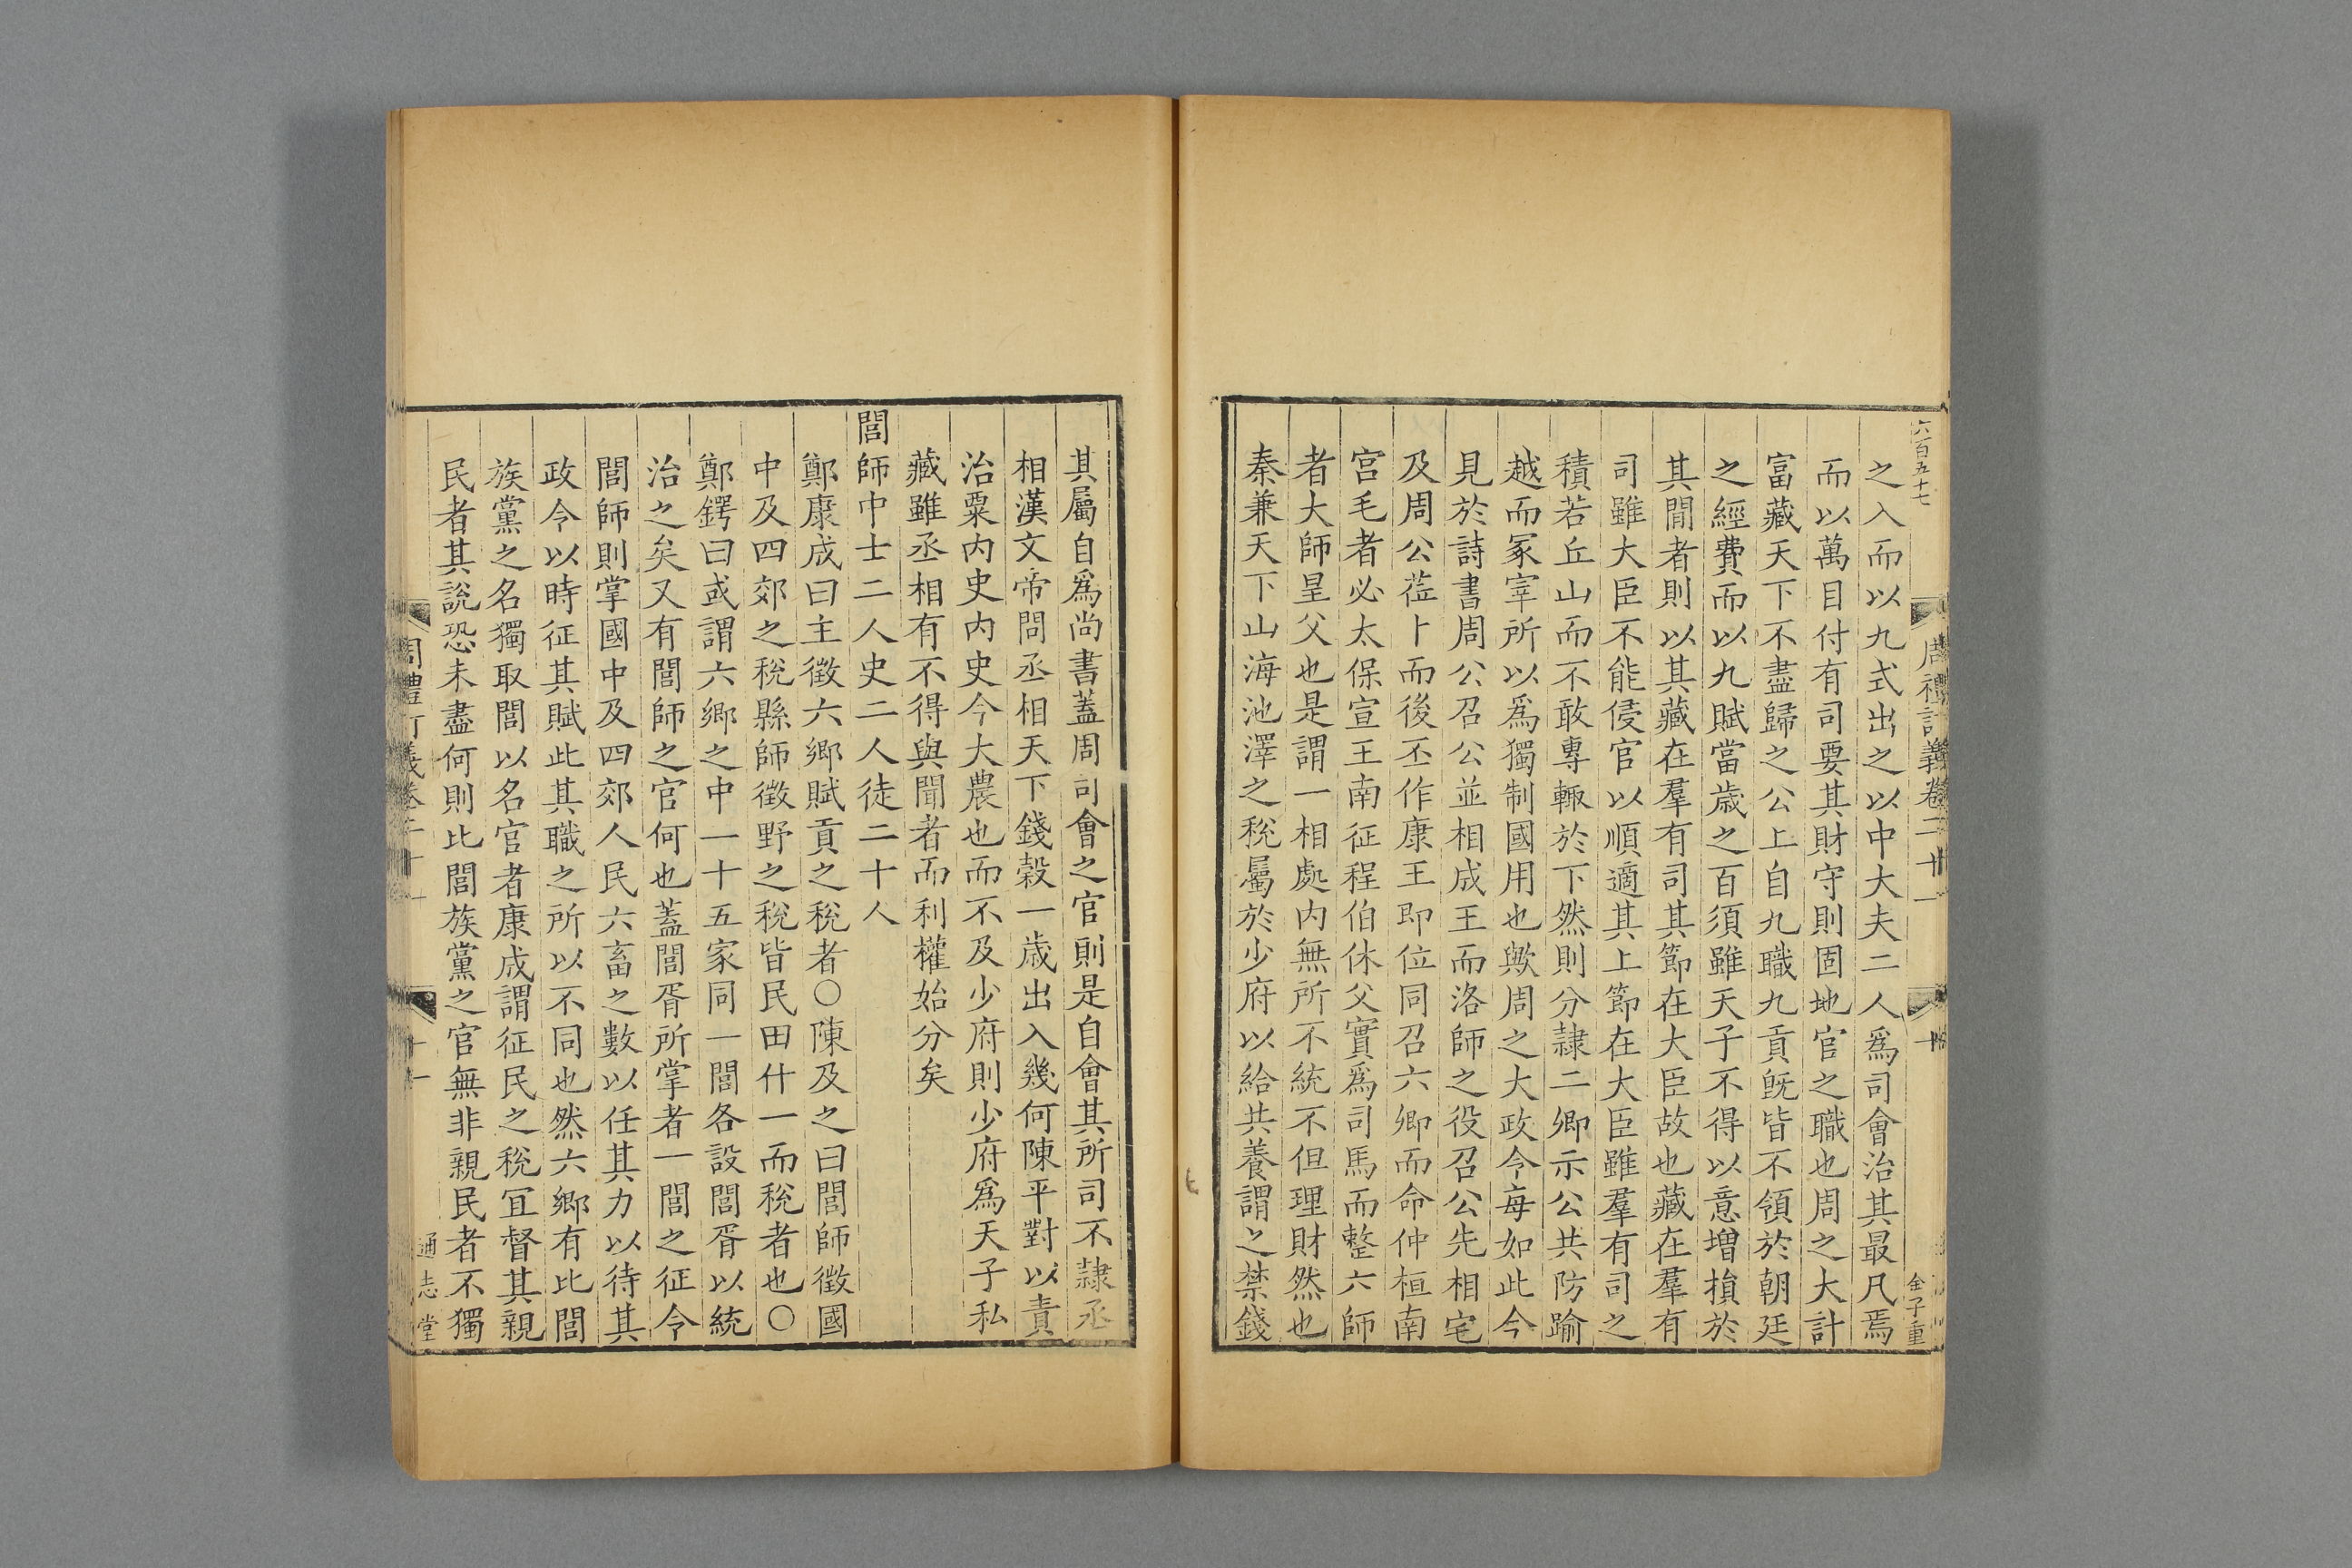 六百五十七
之入而以九式出之以中大夫二人爲司會治其最凡焉
而以萬目付有司要其財守則固地官之職也周之大計
富藏天下不盡歸之公上自九職九貢旣皆不領於朝廷
之經費而以九賦當歲之百須雖天子不得以意増損於
其間者則以其藏在羣有司其節在大臣故也藏在羣有
司雖大臣不能侵官以順適其上節在大臣雖羣有司之
積若丘山而不敢專輙於下然則分隷二卿示公共防踰
越而冢宰所以爲獨制國用也歟周之大政令每如此今
見於詩書周公召公並相成王而洛師之役召公先相宅
及周公莅卜而後丕作康王即位同召六卿而命仲桓南
宫毛者必太保宣王南征程伯休父實爲司馬而整六師
者大師皇父也是謂一相處内無所不統不但理財然也
秦兼天下山海池澤之稅屬於少府以給共養謂之禁錢
周禮訂義卷二十一
金子重
其屬自爲尚書蓋周司會之官則是自會其所司不隷丞
相漢文帝問丞相天下錢穀一歲出入幾何陳平對以責
治粟内史内史今大農也而不及少府則少府爲天子私
藏雖丞相有不得與聞者而利權始分矣
閭師中士二人史二人徒二十人
鄭康成曰主徴六鄉賦貢之稅者○陳及之曰閭師徴國
中及四郊之稅縣師徴野之稅皆民田什一而稅者也○
鄭鍔曰或謂六鄉之中一十五家同一閭各設閭胥以統
治之矣又有閭師之官何也蓋閭胥所掌者一閭之征令
閭師則掌國中及四郊人民六畜之數以任其力以待其
政令以時征其賦此其職之所以不同也然六鄉有比閭
族黨之名獨取閭以名官者康成謂征民之稅冝督其親
民者其說恐未盡何則比閭族黨之官無非親民者不獨
周禮訂義卷二十一
十一
通志堂